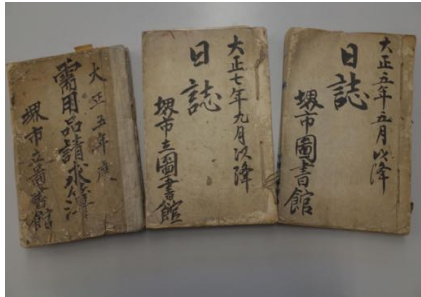 大正五年度
需用品請求簿
堺市立圖書館
大正七年九月以降
日誌
堺市立圖書館
大正五年五月以降
日誌
堺市圖書館